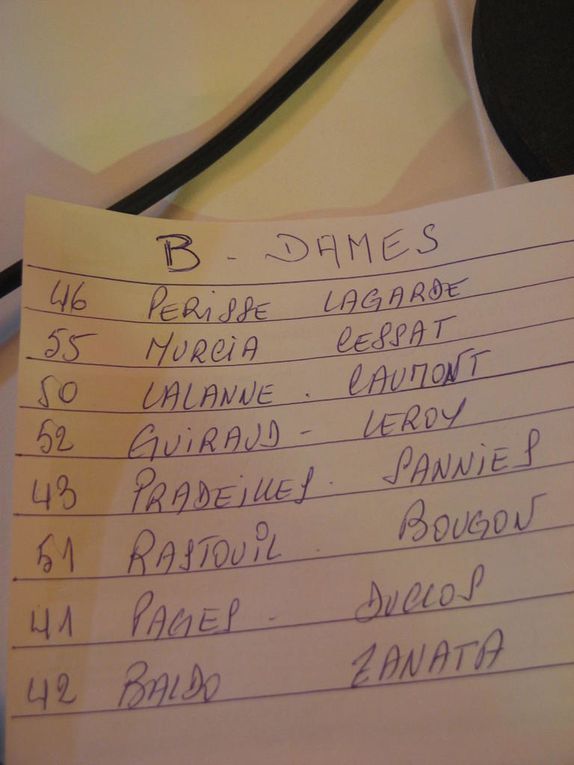 B - DAMES
46 PERISSE LAGARDE
55 MURCIA CESSAT
50 LALANNE . CAUMONT
52 GUIRAUD - LEROY
43 PRADEILLES . SANNIES
51 RASTOUIL . BOUGON
41 PAGES - DUCLOS
42 BALDO ZANATA